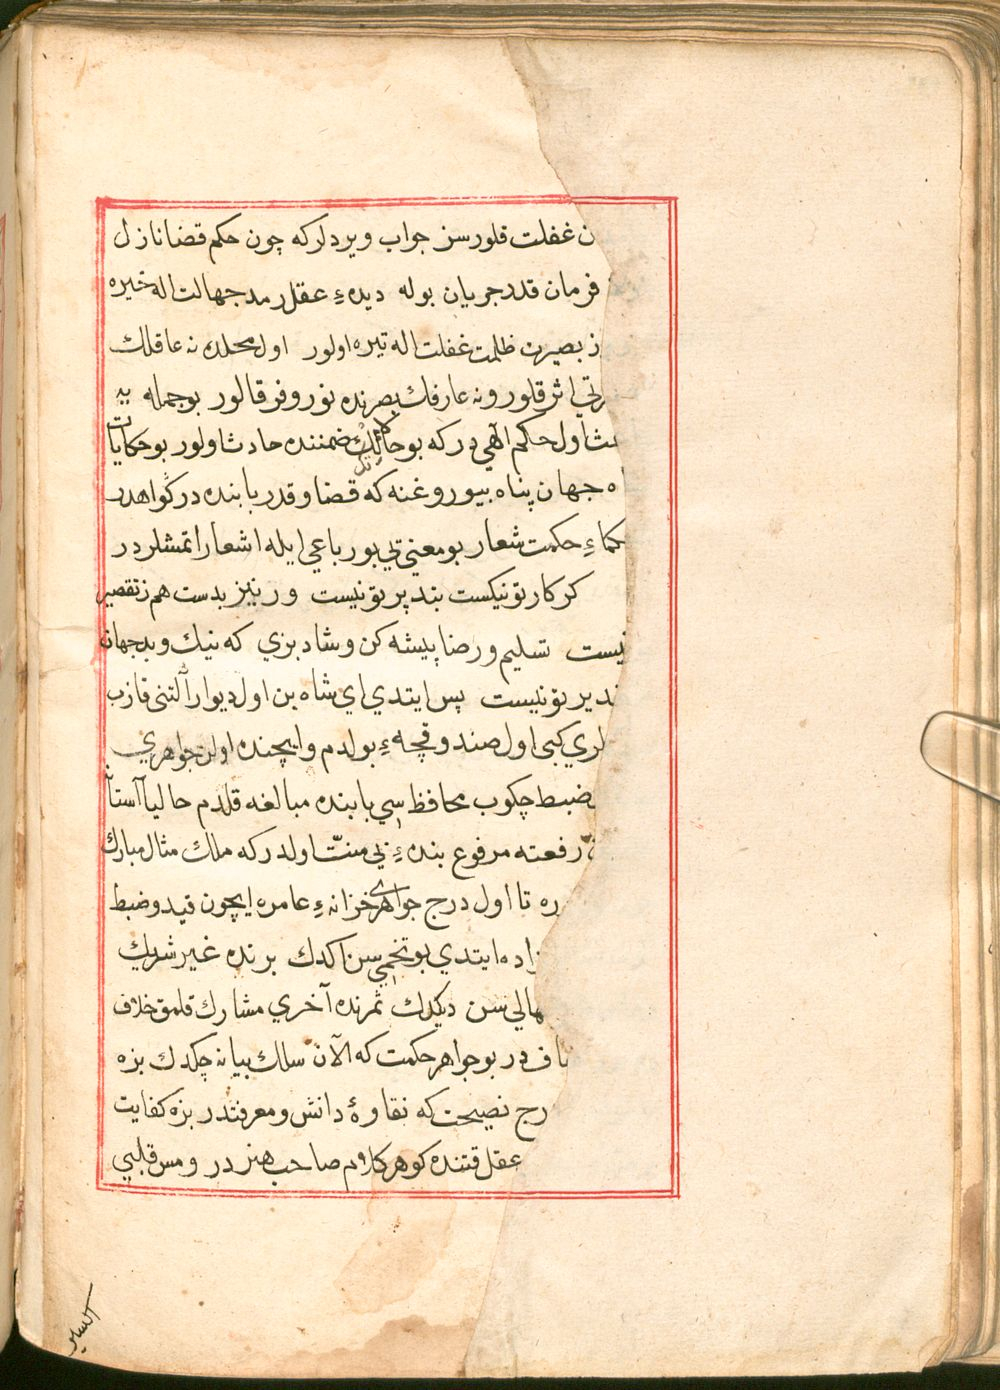 ن غفلت قلورسز جواب ويرديلركه چون حكم قضا نازل
فرمان قدر جريان بوله ديدهٔ عقل رمد جهالت اله خيره
ز بصيرت ظلمت غفلت اله تيره اولور اول محلده نه عاقلك
رتي اثر قلور ونه عارفك بصرنده نور وفر قالور بو جمله يه
عث اول حكم الهي دركه بو حالك ضمننده حادث اولور بو حكايات
اه جهان پناه بيوروغنه كه قضا وقدر بابنده در كواهدر
حكماء حكمت شعار بو معنيي بو رباعي ايله اشعار اتمشلردر
كر كار تو نيكست بتدبير تو نيست ور نيز بدست هم ز تقصير
نيست تسليم ورضا پيشه كن وشاد بزي كه نيك وبد جهان
تدبير تو نيست پس ايتدي اي شاه بن اول ديوار آلتني قازب
لري كبي اول صندوقچهٔ بولدم وايچنده اولن جواهري
ضبط چكوب محافظه سي بابنده مبالغه قلدم حاليا آستا
رفعته مرفوع بندهٔ بي منت اولدركه ملك مثال مبارك
ره تا اول درج جواهري خزانهٔ عامره ايچون قيد وضبط
زاده ايتدي بو تخمي سن اكدك برنده غير شريك
هالي سن ديكدك ثمرنده آخري مشارك قلمق خلاف
اف در بو جواهر حكمت كه الآن سلك بيانه چكدك بزه
رج نصيحت كه نقاوهٔ دانش ومعرفتدر بزه كفايت
عقل قتنده كوهر كلام صاحب هنردر ومس قلبي
اكسير